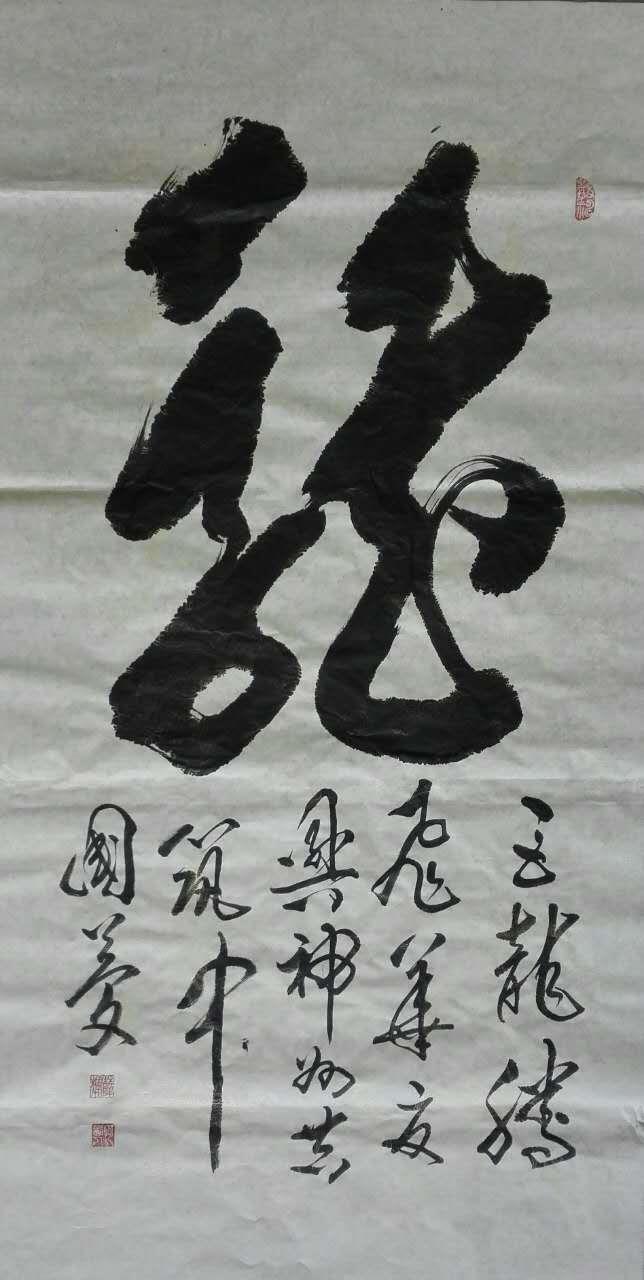 龍
巨龍騰
飛華夏
興神州共
筑中
國夢